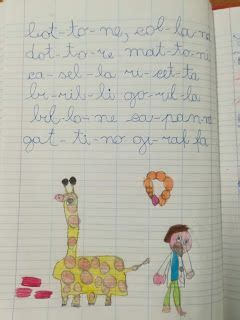 bot-to-ne, col-la-na
dot-to-re mat-to-ni
ca-sel-la ri-cet-ta
bi-ril-li go-ril-la
gat-ti-no gi-raf-fa